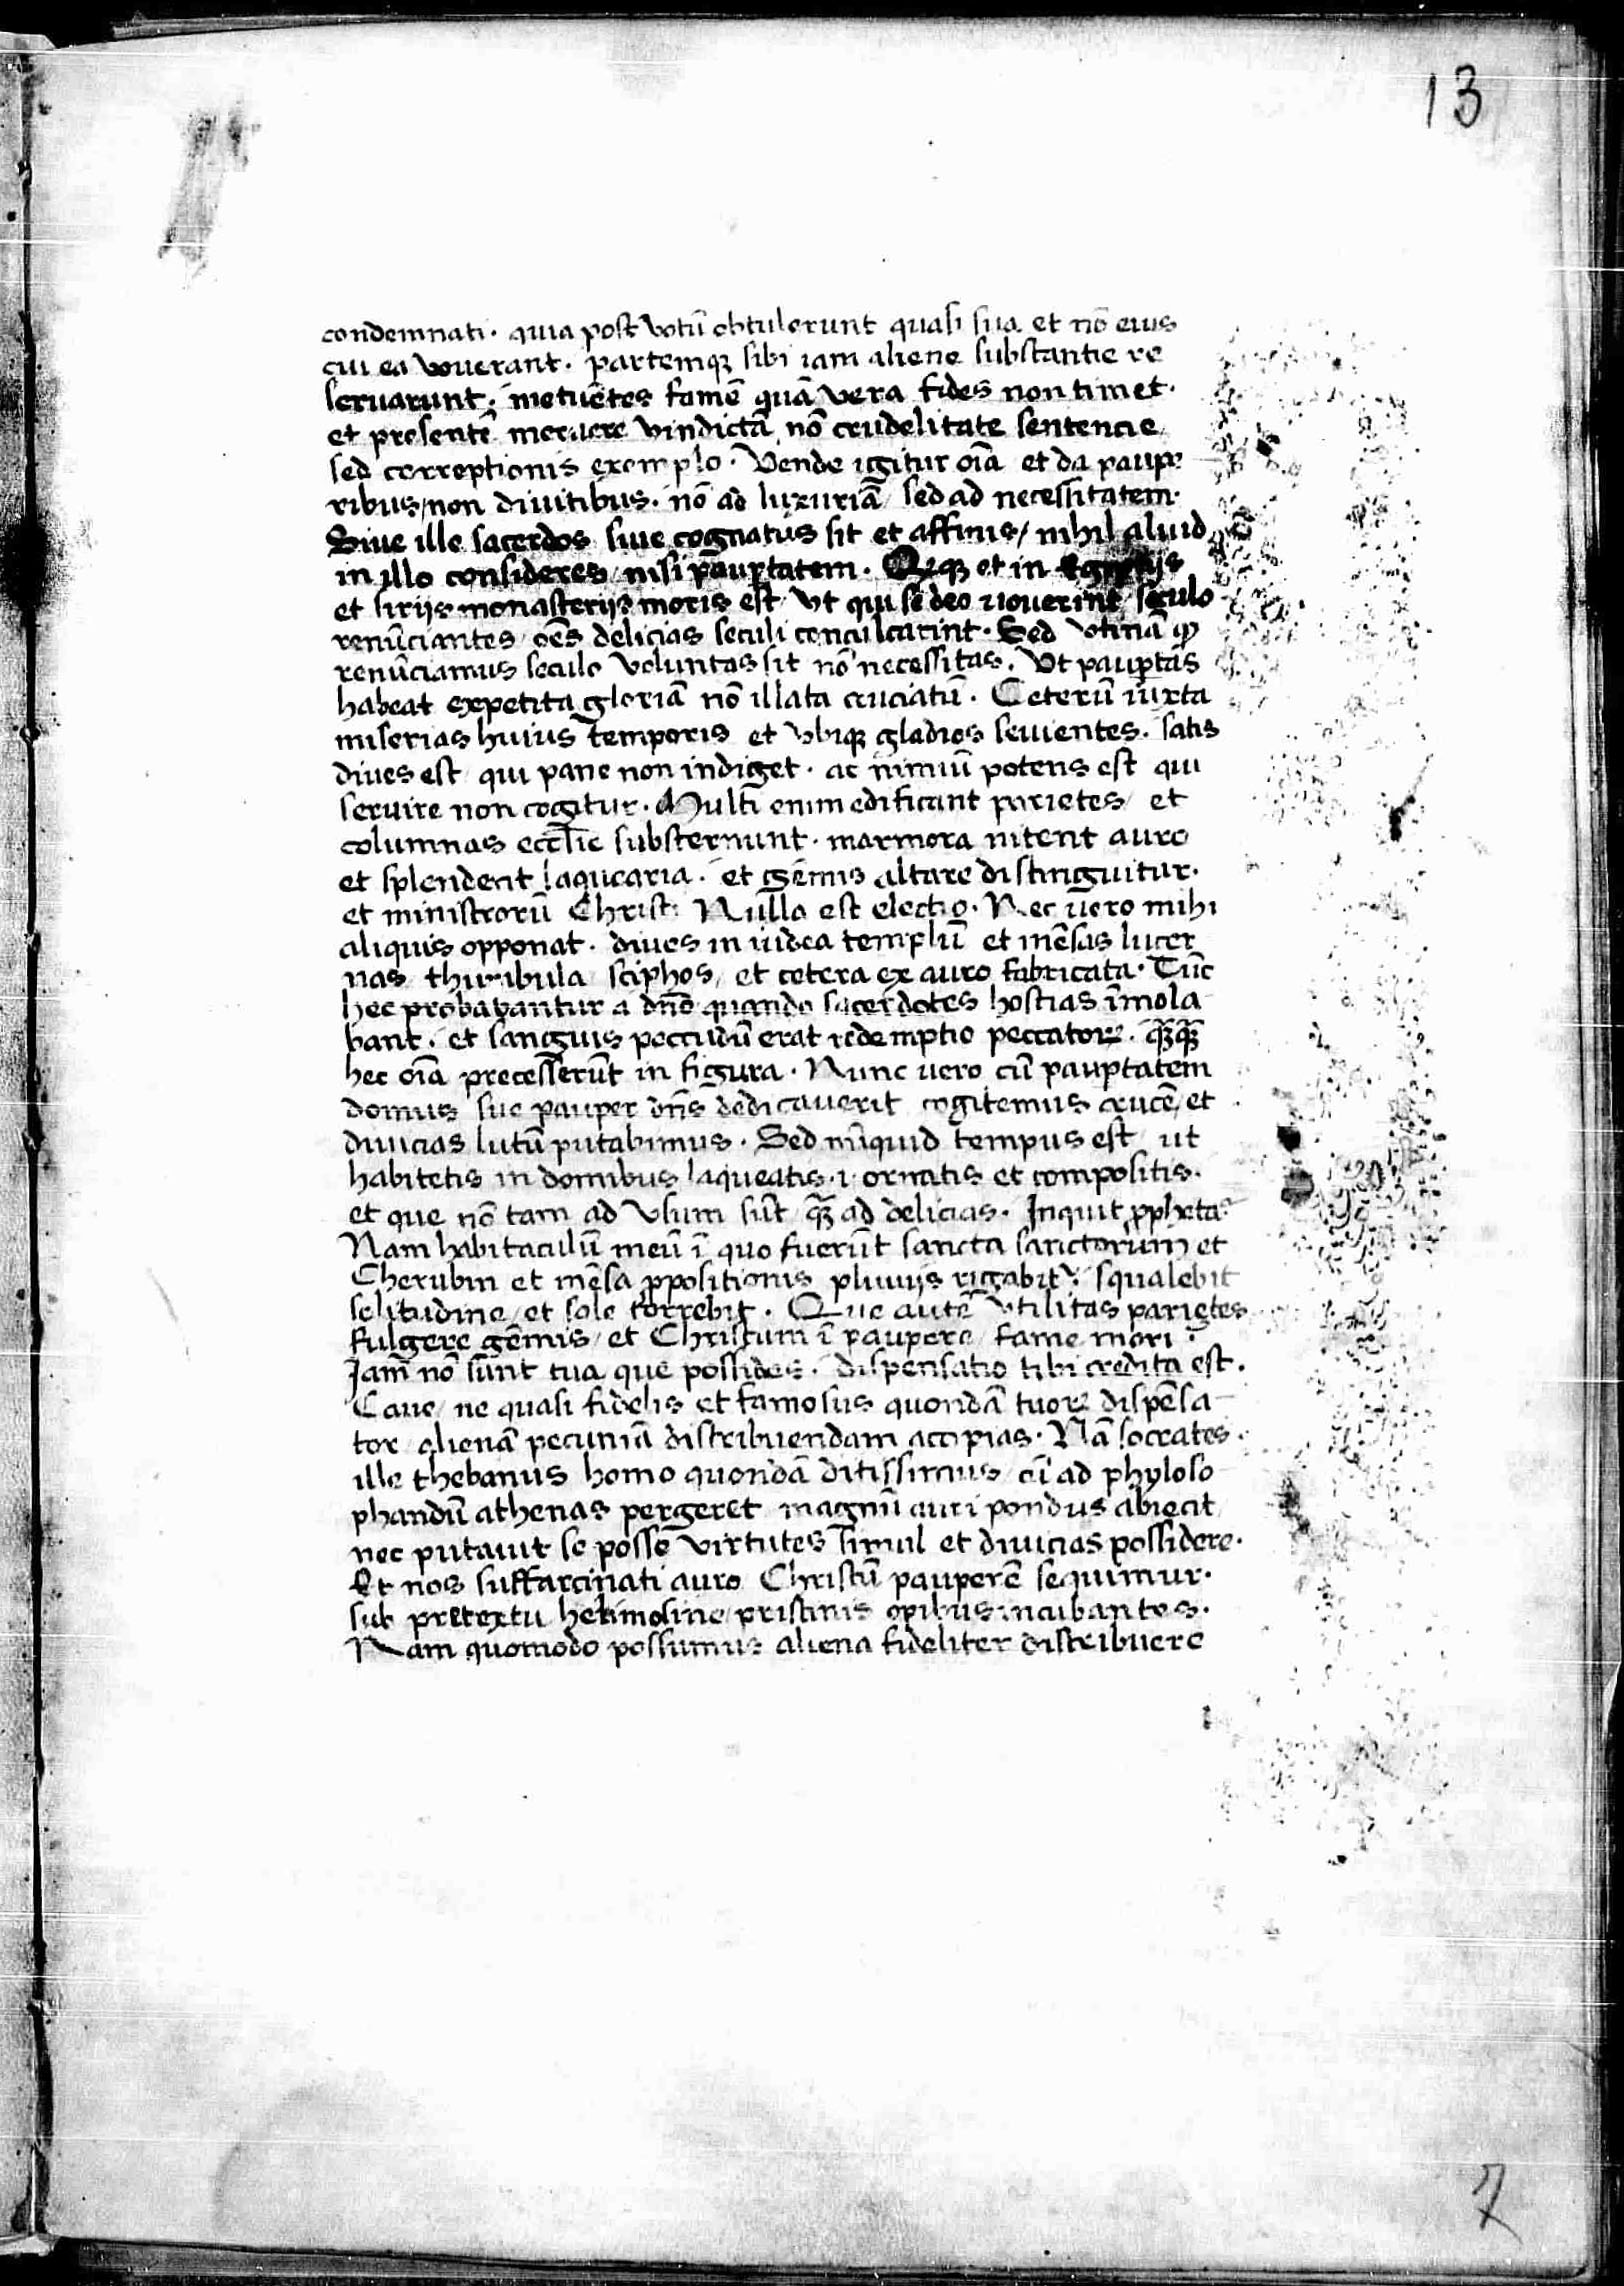 13
condemnati. quia post votū obtulerunt quasi sua et nō eius
cui ea vouerant. partemqꝫ sibi iam aliene substantie re
seruarunt. metuētes famē quā vera fides non timet.
et presentē meruere vindictā nō crudelitate sentencie
sed correptionis exemplo. Vende igitur oīa et da paupe
ribus/ non diuitibus. nō ad luxuriā/ sed ad necessitatem.
Siue ille sacerdos siue cognatus sit et affinis/ nihil aliud
in illo consideres/ nisi paup̄tatem. et in Egyptijs
et sirijs monasterijs moris est/ vt qui se deo vouerint seculo
renūciantes/ oēs delicias seculi conculcarint. Sed vtinā ꝙ
renūciamus seculo voluntas sit nō necessitas. Vt paup̄tas
habeat expetita gloriā nō illata cruciatū. Ceterū iuxta
miserias huius temporis et vbiqꝫ gladios seuientes. satis
diues est/ qui pane non indiget. ac nimiū potens est qui
seruire non cogitur. Multi enim edificant parietes/ et
columnas eccl̄ie substernunt. marmora nitent auro
et splendent laquearia. et gēmis altare distinguitur.
et ministrorū Christi Nulla est electio. Nec uero mihi
aliquis opponat. diues in iudea templū et mēsas lucer
nas thuribula sciphos/ et cetera ex auro fabricata. Tūc
hec probabantur a dn̄o quando sacerdotes hostias īmola
bant. et sanguis peccudū erat redemptio peccatoꝝ. qꝫqꝫ
hec oīa precesserūt in figura. Nunc uero cū paup̄tatem
domus sue pauper dn̄s dedicauerit cogitemus crucē/ et
diuicias lutū putabimus. Sed nūquid tempus est/ ut
habitetis in domibus laqueatis .i. ornatis et compositis.
et que nō tam ad vsum sūt qꝫ ad delicias. Inquit ꝓpheta
Nam habitaculū meū ī quo fuerūt sancta sanctorum et
Cherubin et mēsa ꝓpositionis pluuijs rigabit᷑ squalebit
solitudine/ et sole torrebit᷑. Que autē vtilitas parietes
fulgere gēmis/ et Christum ī paupere/ fame mori?
Jam nō sunt tua que possides. dispensatio tibi credita est.
Caue/ ne quasi fidelis et famosus quondā tuoꝝ dispēsa
tor/ alienā pecuniā distribuendam accipias. Nā socrates
ille thebanus homo quondā ditissimus/ cū ad phyloso
phandū athenas pergeret magnū auri pondus abiecit
nec putauit se posse virtutes simul et diuicias possidere.
Et nos suffarcinati auro Christū pauperē sequimur.
sub pretextu helimosine/ pristinis opibus incubantes.
Nam quomodo possumus aliena fideliter distribuere
7